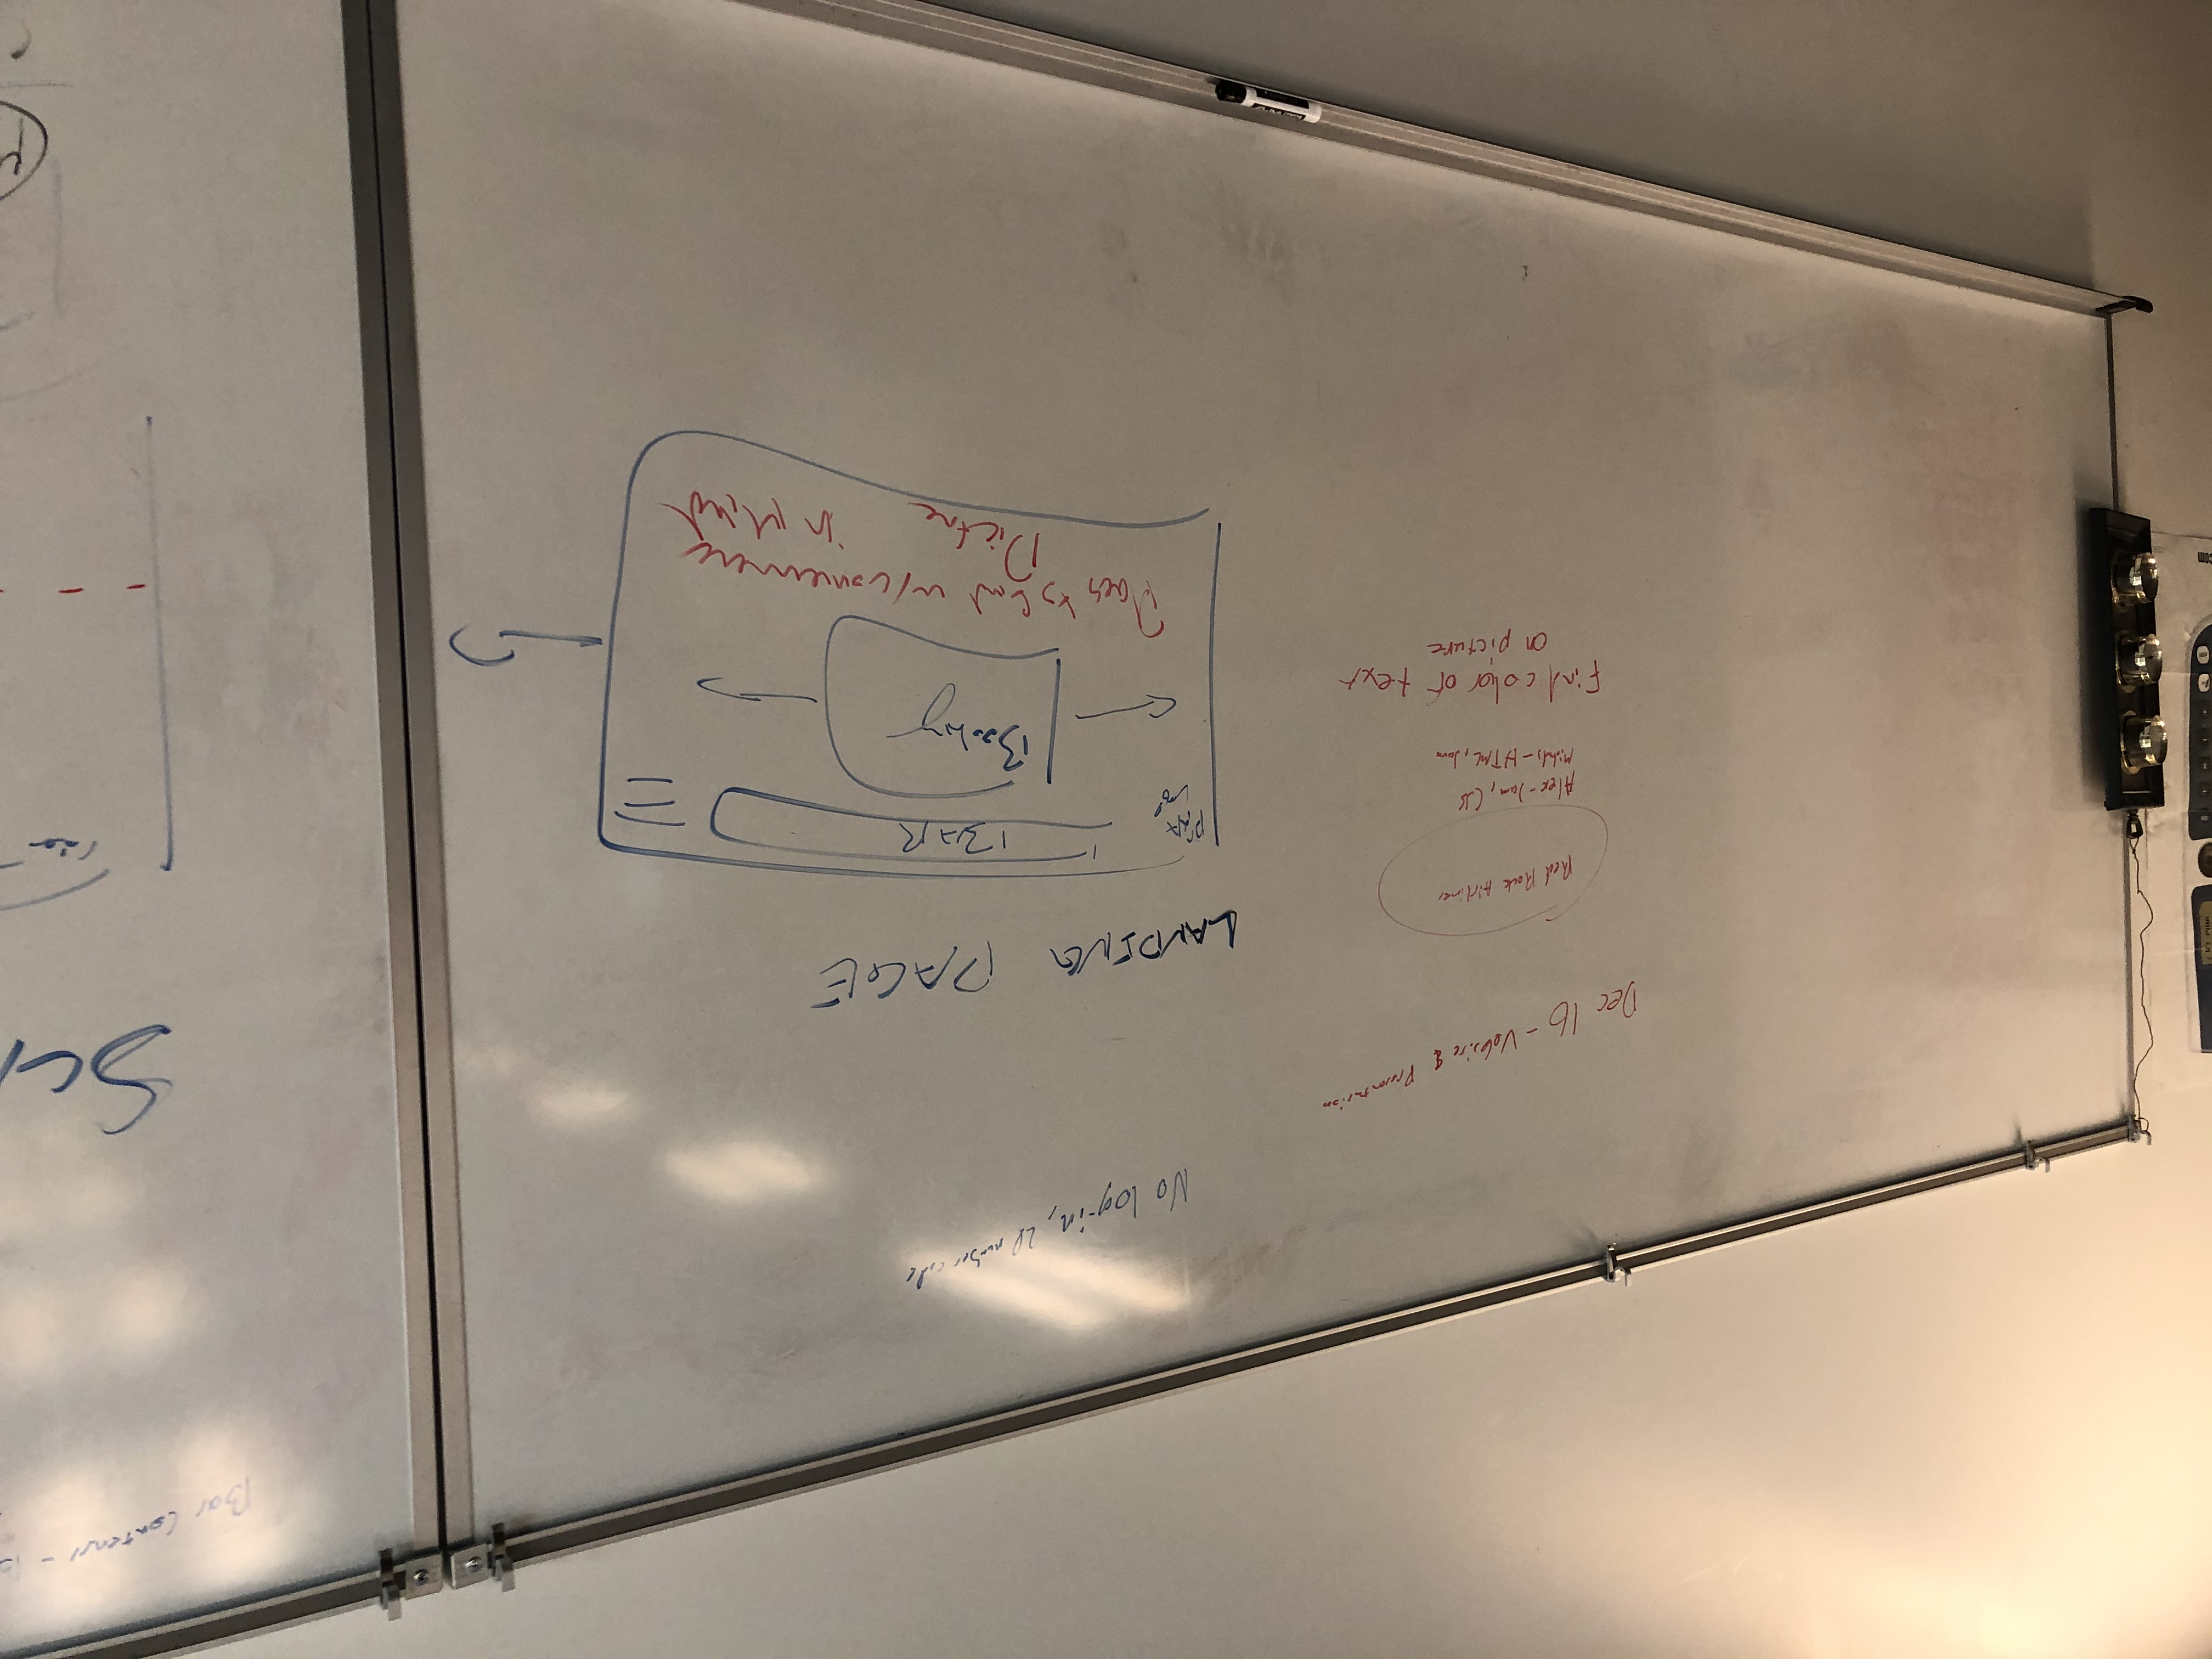 No log-in, number code
Dec 16 - Website & Presentation
Red Rock Airlines
Alex - Java, CSS
HTML, Java
Find color of text
on picture
LANDING PAGE
RRA
Logo
BAR
Booking
w/convenience
Picture in Mind
Bar Content -
Sc